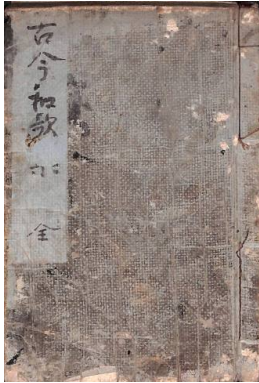 古今和歌 全